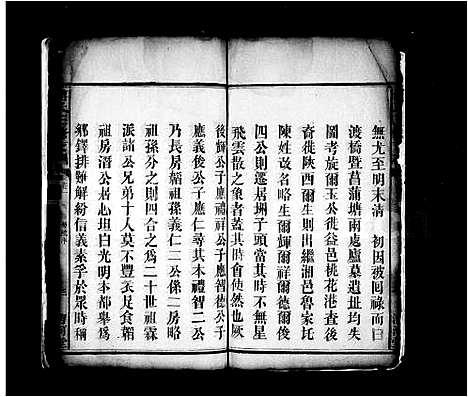 無尤至明末清 初因被囘祿而曰
渡橋暨菖蒲塘兩處廬墓遺址均失
圖考旋爾玉公徙益邑桃花港查後
裔徙陝西爾生則出繼湘邑魯家圫
陳姓改名略生爾輝爾祥爾德爾俊
四公則遷居堋子頭當其時不無星
飛雲散之象者蓋其時會使然也厥
後輝公子應禮福公子應禎祥公子
應義俊公子應仁尋其本禮智二公
乃長房韜祖孫義仁二公係二房略
祖孫分之則四合之爲二十世祖霖
派諸公兄弟十人莫不豐衣足食韜
祖房濬公居心坦白光明本都舉爲
鄉鐸排難解紛信義素孚於眾時稱